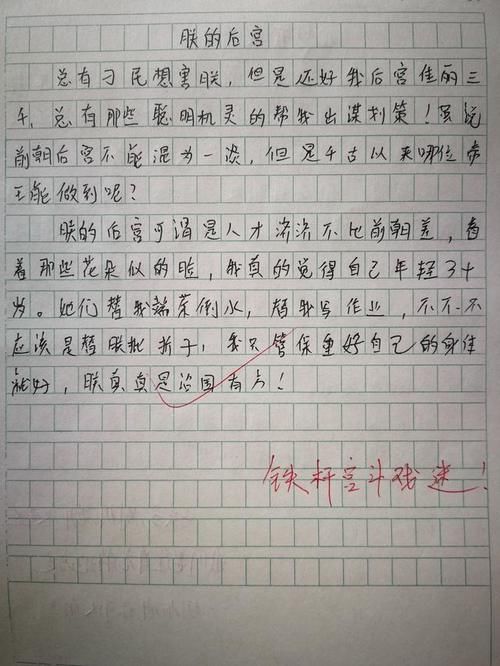 朕的后宫
总有刁民想害朕，但是还好我后宫佳丽三
千，总有那些聪明机灵的帮我出谋划策！虽说
前朝后宫不能混为一谈，但是千古以来哪位帝
王能做到呢？
朕的后宫可谓是人才济济不比前朝差，看
着那些花朵似的脸，我真的觉得自己年轻了十
岁。她们替我端茶倒水，替我写作业，不不不
应该是替朕批折子，我只管保重好自己的身体
就好，朕真真是治国有方！
铁杆宫斗戏迷！